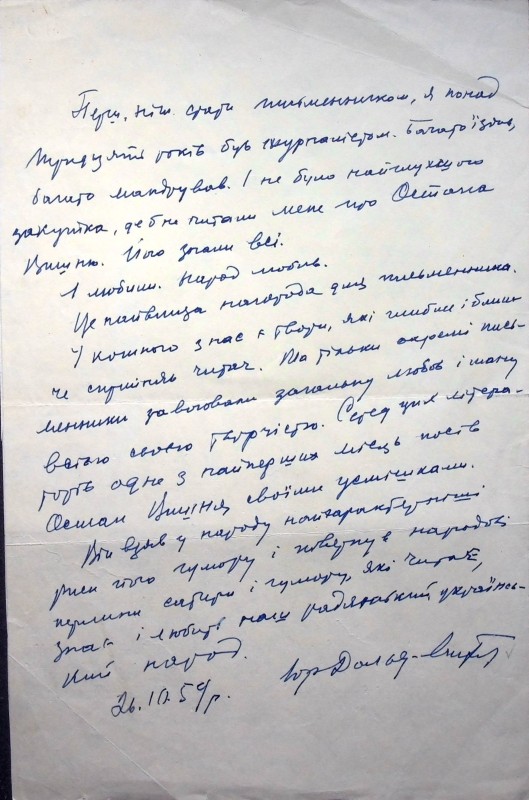 Перш, ніж стати письменником, я понад
тридцять років був журналістом. Багато їздив,
багато мандрував. І не було найглухішого
закутка, де б не читали мене про Остапа
Вишню. Його знали всі.
І любили. Народ любив.
Це найвища нагорода для письменника.
У кожного з нас є твори, які глибше і ближ-
че сприйняв читач. Та тільки окремі пись-
менники завоювали загальну любов і шану
всією своєю творчістю. Серед цих літера-
торів одне з найперших місць посів
Остап Вишня своїми усмішками.
Він взяв у народу найхарактерніші
риси його гумору і повернув народові
перлини сатири і гумору, які читає,
знає і любить наш радянський українсь-
кий народ.
Юр Дольд-
59 р.